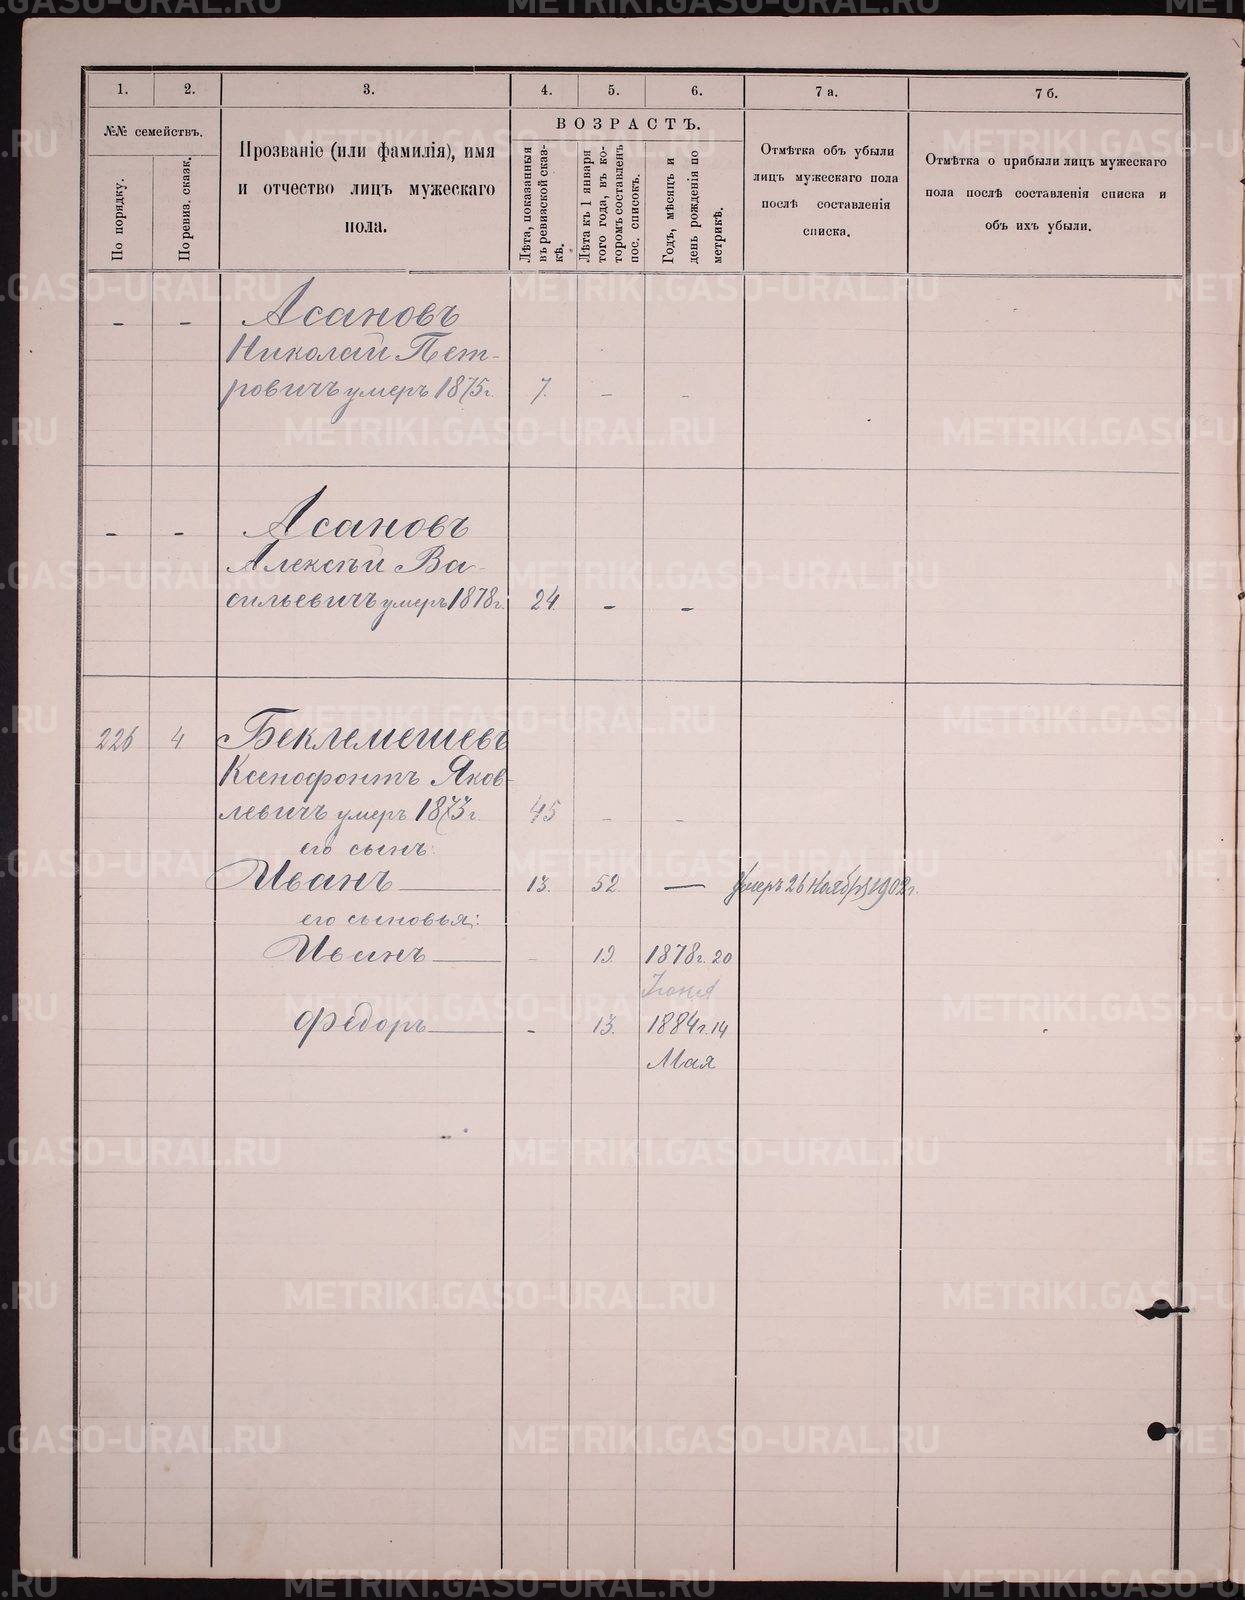 1.
2.
3.
4.
5.
6.
7 а.
7 б.
№№ семействъ.
По порядку.
По ревиз. сказк.
Прозваніе (или фамилія), имя
и отчество лицъ мужескаго
пола.
ВОЗРАСТЪ.
Лѣта, показанныя
въ ревизской сказ-
кѣ.
Лѣта къ 1 января
того года, въ ко-
торомъ составленъ
пос. списокъ.
Годъ, мѣсяцъ и
день рожденія по
метрикѣ.
Отмѣтка объ убыли
лицъ мужескаго пола
послѣ составленія
списка.
Отмѣтка о прибыли лицъ мужескаго
пола послѣ составленія списка и
объ ихъ убыли.
- - Асановъ
Николай Пет-
ровичъ умеръ 1875г. 7. - -
- - Асановъ
Алексѣй Ва-
сильевичъ умеръ 1878г. 24 - -
226 4 Беклемешевъ
Ксенофонтъ Яков-
левичъ умеръ 1873г. 45 - -
его сынъ:
Иванъ 13. 52. — Умеръ 26 Ноября 1902г.
его сыновья:
Иванъ - 19. 1878г. 20
Іюня
Федоръ - 13. 1884г. 14
Мая
METRIKI.GASO-URAL.RU